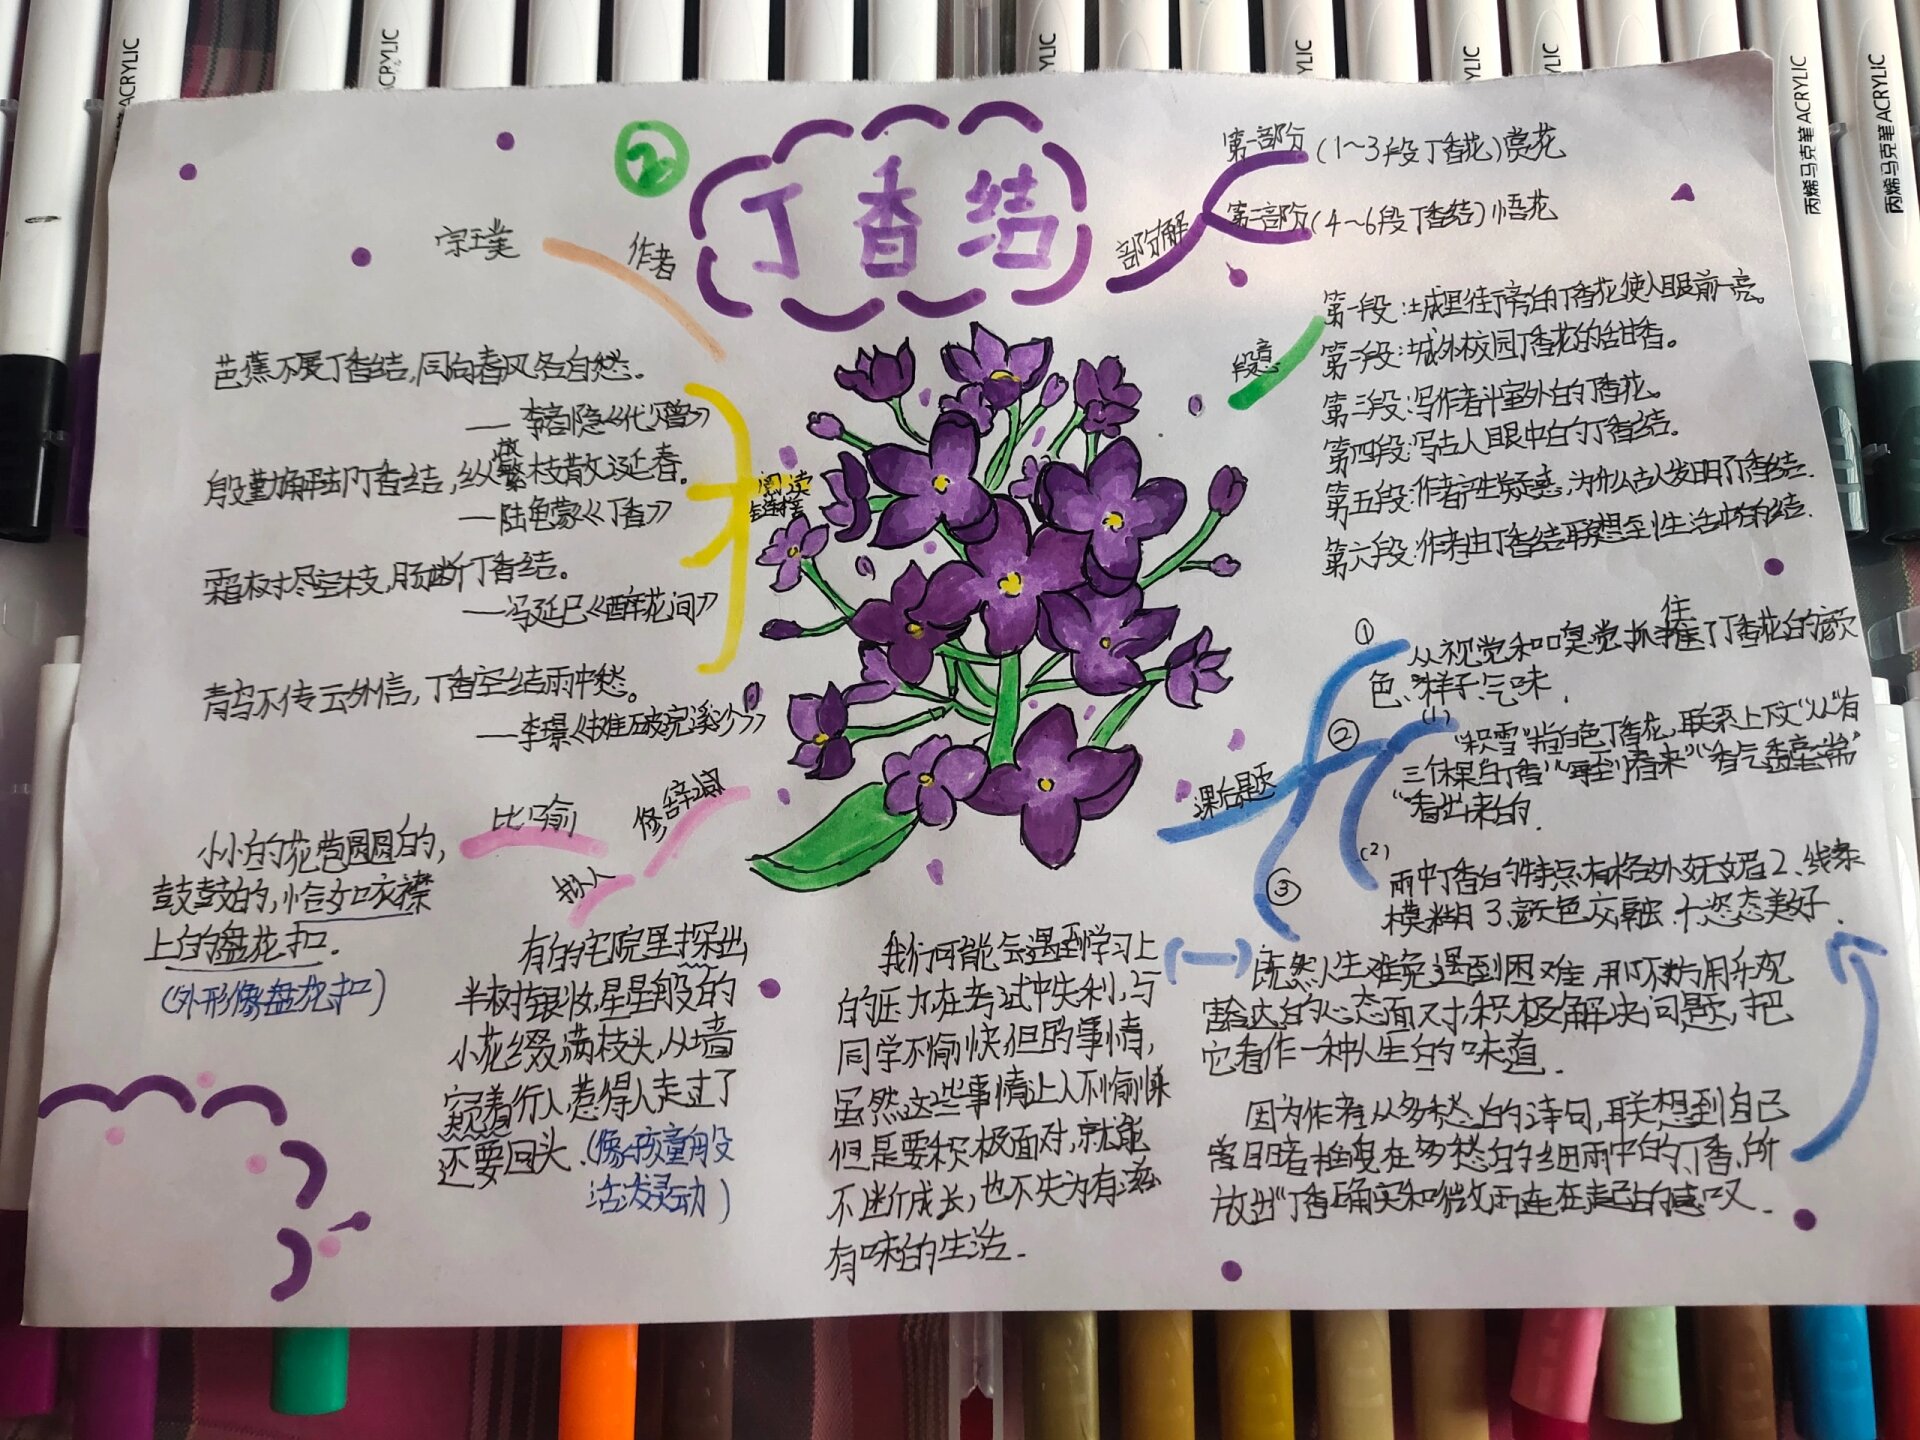 ACRYLIC
ACRYLIC
ACRYLIC
ACRYLIC
ACRYLIC
ACRYLIC
丙烯马克笔 ACRYLIC
丙烯马克笔 ACRYLIC
2
丁香结
作者
宗璞
部分解
第一部分(1~3段丁香花)赏花
第二部分(4~6段丁香结)悟花
段意
第一段:城里街旁的丁香花使人眼前一亮。
第二段:城外校园丁香花的甜香。
第三段:写作者斗室外的丁香花。
第四段:写古人眼中的丁香结.
第五段:作者产生疑惑,为什么古人发明丁香结.
第六段:作者由丁香结联想到生活中的结.
阅读链接
芭蕉不展丁香结,同向春风各自愁。
——李商隐《代赠》
殷勤解却丁香结,纵放繁枝散诞春。
——陆龟蒙《丁香》
霜树尽空枝,肠断丁香结。
——冯延巳《醉花间》
青鸟不传云外信,丁香空结雨中愁。
——李璟《摊破浣溪沙》
修辞
比喻
小小的花苞圆圆的,
鼓鼓的,恰如衣襟
上的盘花扣.
(外形像盘花扣)
拟人
有的宅院里探出
半树银妆,星星般的
小花缀满枝头,从墙
窥着行人,惹得人走过了
还要回头.(像孩童般
活泼灵动)
课后题
①
从视觉和嗅觉,抓住了丁香花的颜
色、样子、气味.
②
(1)
“积雪”指白色丁香花,联系上下文“从”有
三棵白丁香”
看出来的.
(2)
雨中丁香的特点:有格外妩媚2.线条
模糊3.颜色交融.4.姿态美好.
③
既然人生难免遇到困难,那不妨用乐观
豁达的心态面对,积极解决问题,把
它看作一种人生的味道.
我们可能会遇到学习上
的压力,在考试中失利,与
同学不愉快,但的事情,
虽然这些事情让人不愉快
但是要积极面对,就能
不断成长,也不失为有滋
有味的生活.
因为作者从多愁的诗句,联想到自己
在多愁的细雨中的丁香,所
放出“丁香确实和微雨连在一起”的感叹.